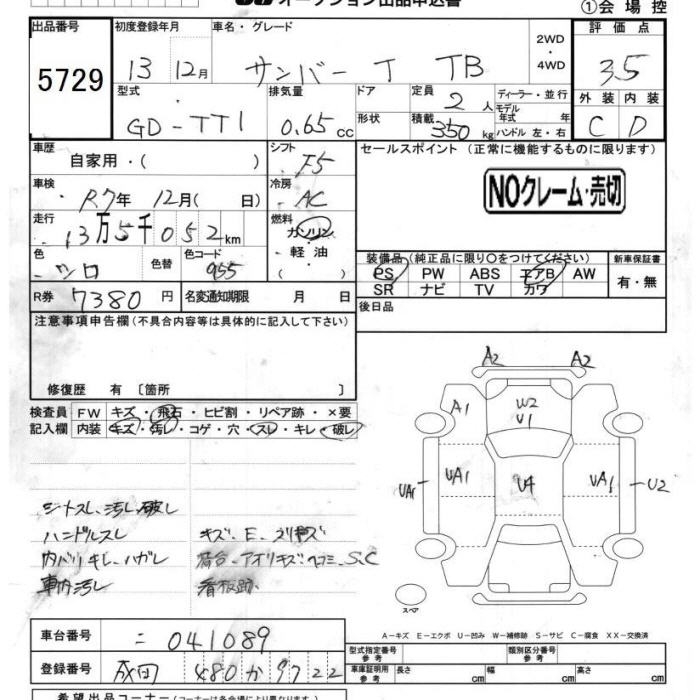 オークション出品申込書
①会場控
出品番号
5729
初度登録年月
13 12月
車名・グレード
サンバー T TB
2WD
・
4WD
評価点
3.5
外装 内装
C D
型式
GD-TT1
排気量
0.65 cc
ドア
形状
定員
2 人
積載
350 kg
ディーラー・並行
モデル年式 年
ハンドル 左・右
車歴
自家用・( )
シフト
F5
セールスポイント (正常に機能するものに限ります)
NOクレーム・売切
車検
R7年 12月( 日)
冷房
AC
走行
13万5千052km
燃料
ガソリン
・軽油
・( )
色
シロ
色替
色コード
955
装備品(純正品に限り○をつけてください)
新車保証書
PS PW ABS エアB AW
SR ナビ TV カワ
有・無
R券 7380円
名変通知期限 月 日
後日品
注意事項申告欄(不具合内容等は具体的に記入して下さい)
修復歴 有 〔箇所 〕
検査員
記入欄
FW キズ・飛石・ヒビ割・リペア跡・×要
内装 キズ・汚レ・コゲ・穴・スレ・キレ・破レ
シートスレ、汚し破レ
ハンドルスレ
内バリキレ、ハガレ
車内汚し
キズ・E・スリキズ
荷台・アオリキズヘコミ、S.C
看板跡
A2 A2
A1 W2
U1
UA1 UA1 U4 UA1 U2
スペア
A-キズ E-エクボ U-凹み W-補修跡 S-サビ C-腐食 XX-交換済
車台番号
=041089
登録番号
成田 480か9722
型式指定番号
参考
類別区分番号
参考
車庫証明用
参考
長さ cm 幅 cm 高さ cm
希望出品コーナー(コーナーは各会場により異なります)